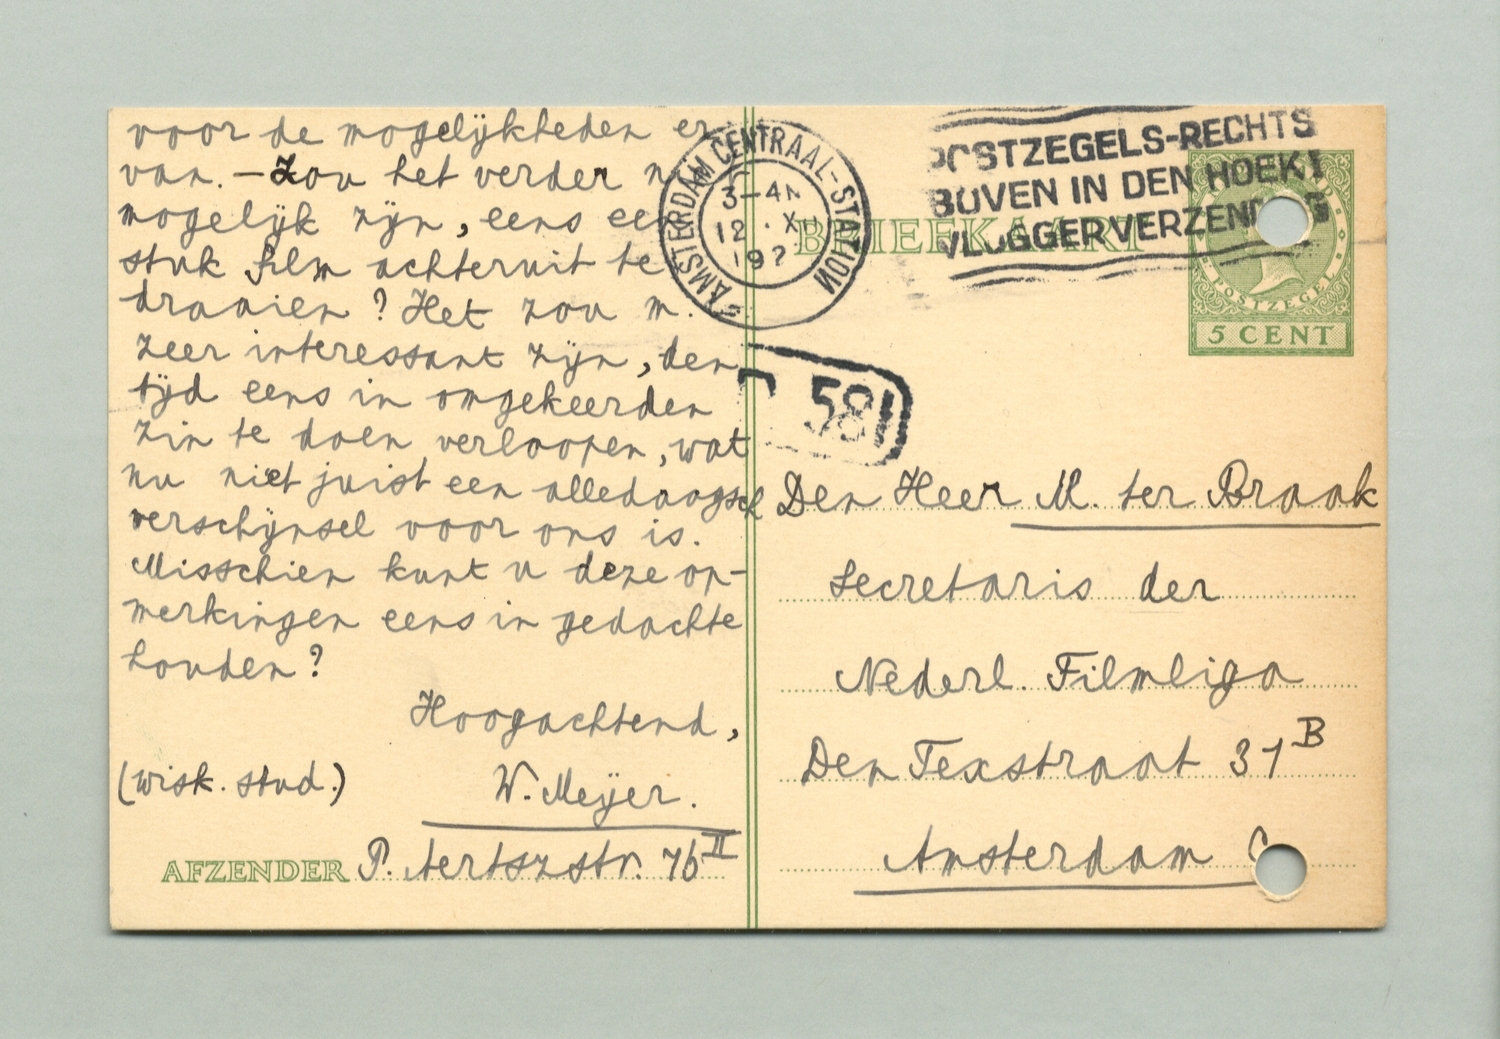 voor de mogelijkheden er
van. — Zou het verder n
mogelijk zijn, eens een
stuk film achteruit te
draaien? Het zou m.
zeer interessant zijn, den
tijd eens in omgekeerden
zin te doen verloopen, wat
nu niet juist een alledaagsch
verschijnsel voor ons is.
Misschien kunt u deze op-
merkingen eens in gedachte
houden?
Hoogachtend,
(wisk. stud.) W. Meijer.
AFZENDER P. Aertszstr. 76 II
AMSTERDAM CENTRAAL-STATION
3-4 N
12 . X
192
POSTZEGELS-RECHTS
BOVEN IN DEN HOEK!
VLUGGER VERZENDING
BRIEFKAART
POSTZEGEL
5 CENT
58
Den Heer M. ter Braak
Secretaris der
Nederl. Filmliga
Den Texstraat 31 B
Amsterdam C